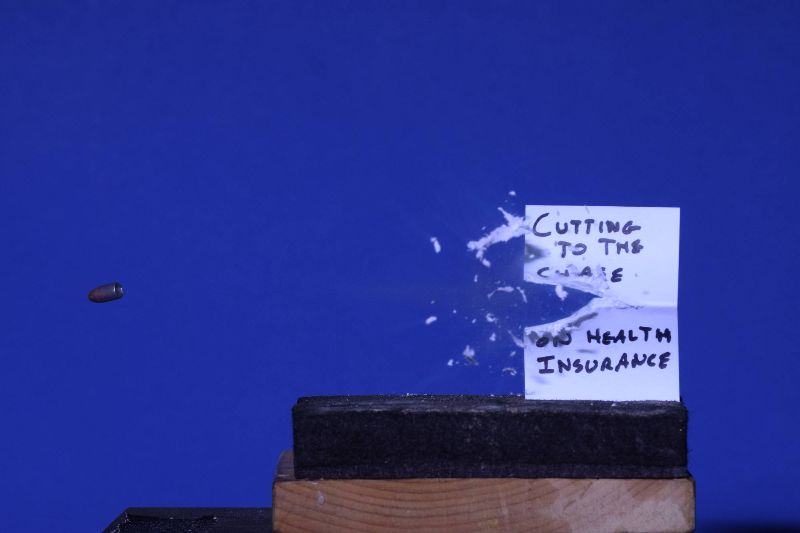 CUTTING
TO THE
CHASE
ON HEALTH
INSURANCE